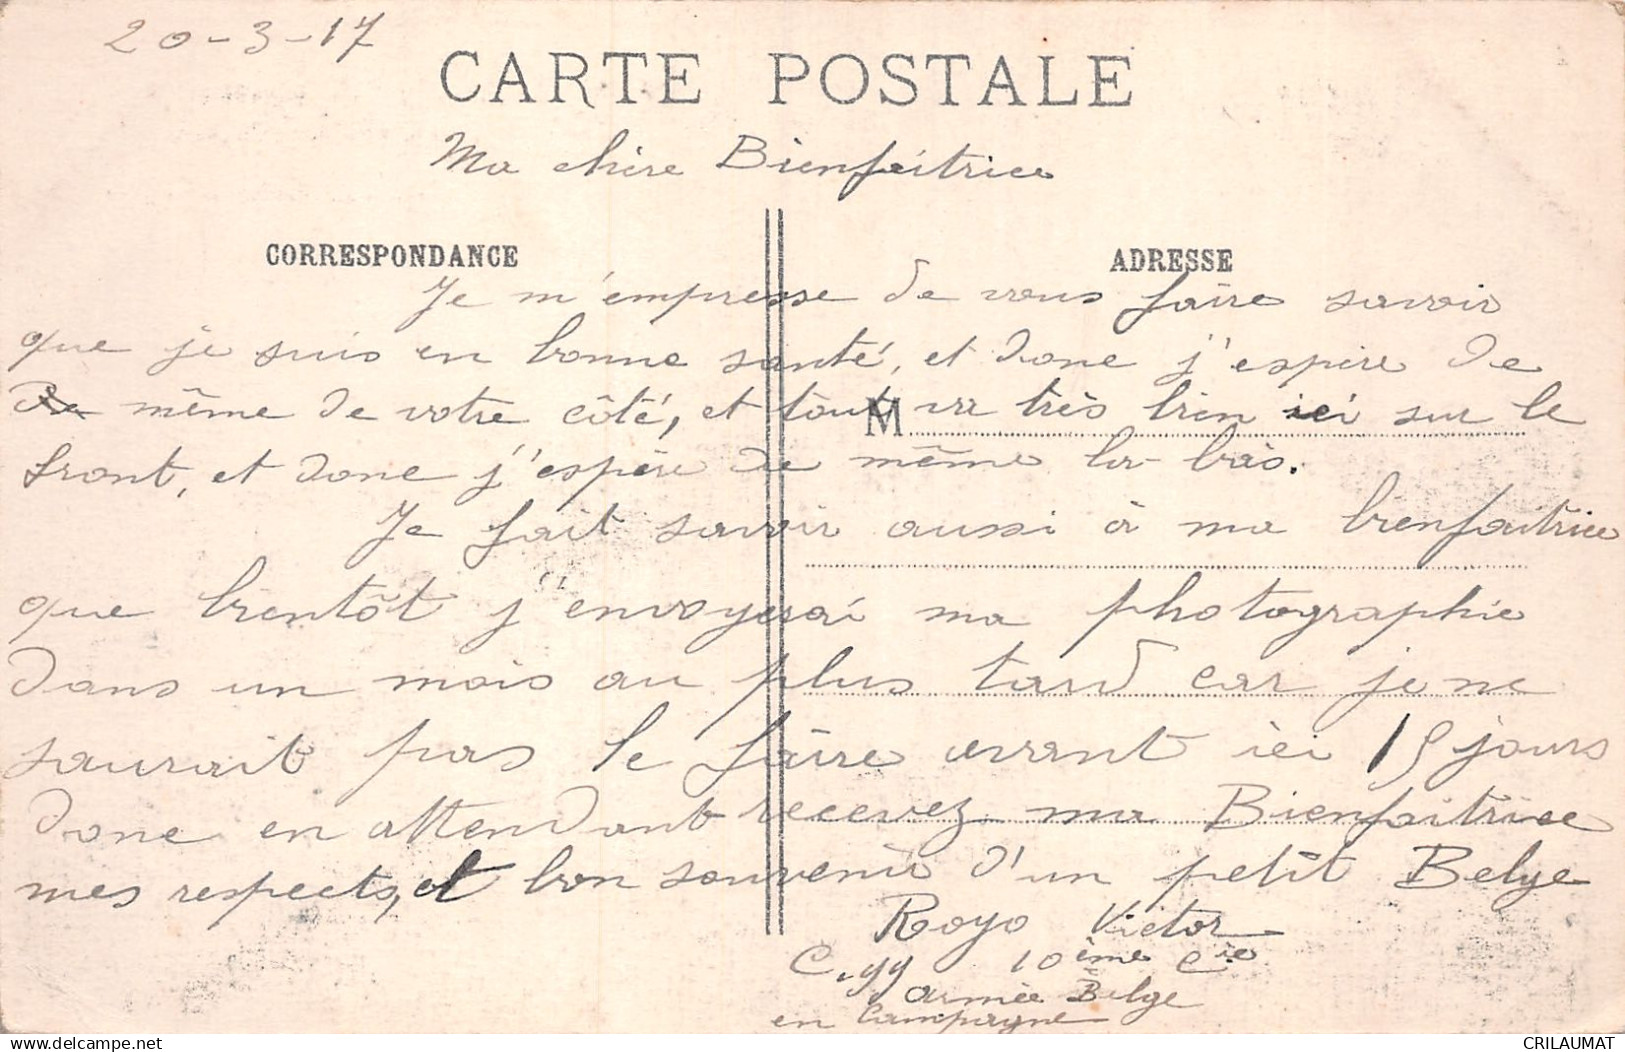 20-3-17
CARTE POSTALE
Ma chère Bienfaitrice
CORRESPONDANCE
ADRESSE
Je m'empresse de vous faire savoir
que je suis en bonne santé, et donc j'espère de
même de votre côté, et tout va très bien ici sur le
M
front, et donc j'espère de même là-bas.
Je fait savoir aussi à ma bienfaitrice
que bientôt j'envoyerai ma photographie
dans un mois au plus tard car je ne
saurait pas le faire avant ici 15 jours
donc en attendant recevez ma Bienfaitrice
mes respects, et bon souvenir d'un petit Belge
Royo Victor
C.99 10ème Cie
armée Belge
en Campagne
CRILAUMAT